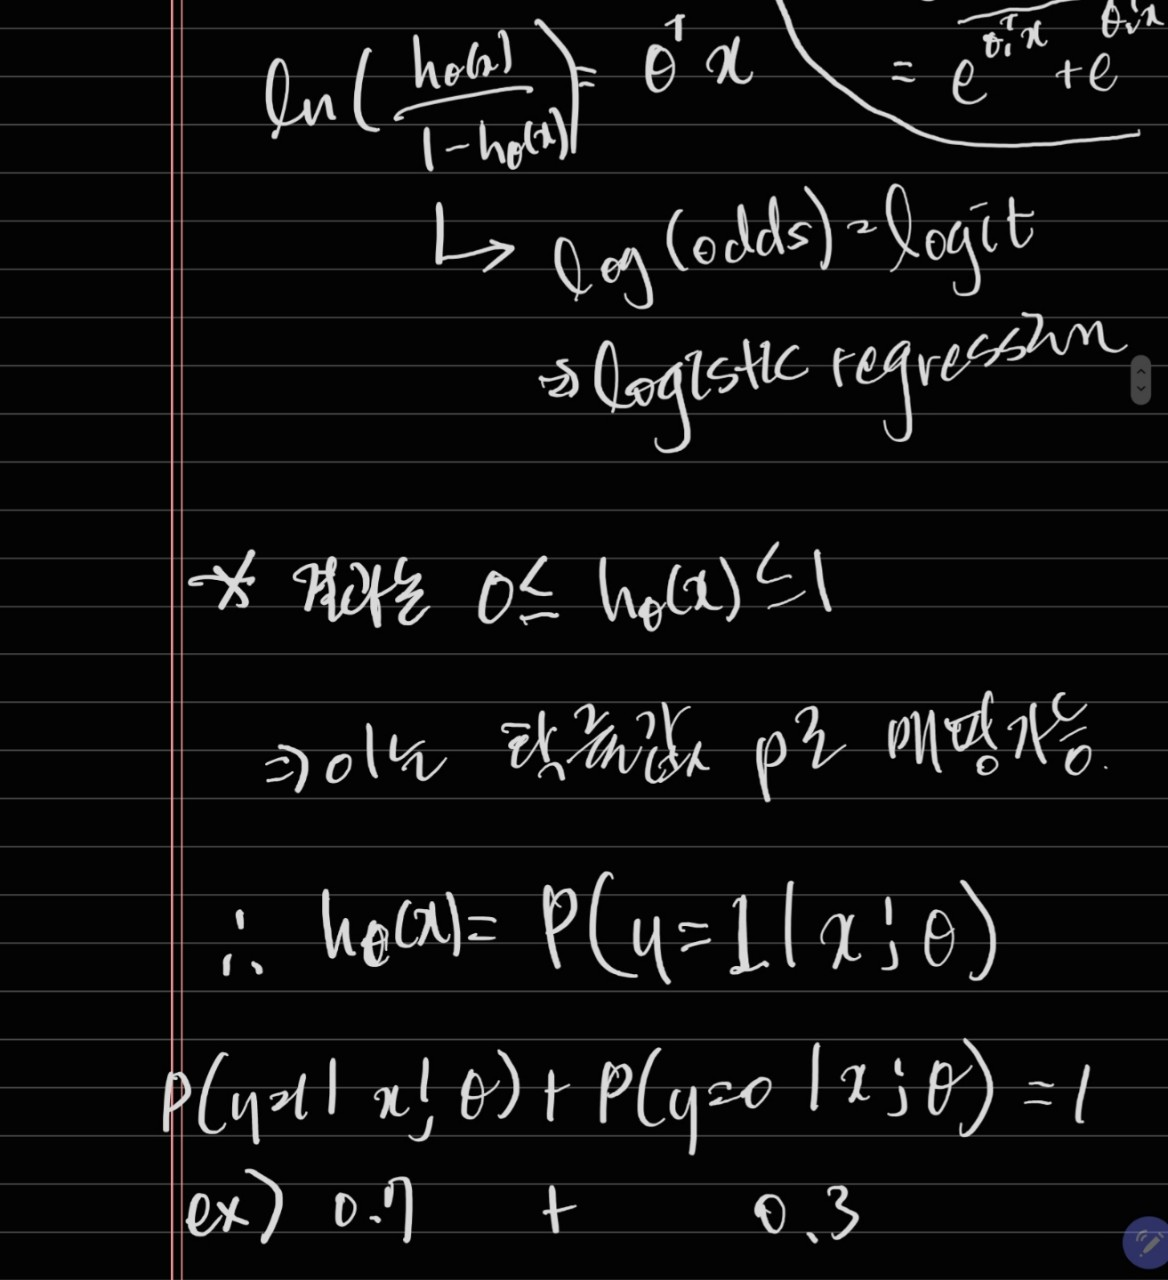 ln(h_θ(x) / 1-h_θ(x)) = θ^T x
= e^{θ_1^T x} + e
↳ log(odds) = logit
⇒ logistic regression
* 결과는 0 ≤ h_θ(x) ≤ 1
⇒ 이는 확률값 p로 매핑가능.
∴ h_θ(x) = P(y=1 | x; θ)
P(y=1 | x; θ) + P(y=0 | x; θ) = 1
ex) 0.7 + 0.3